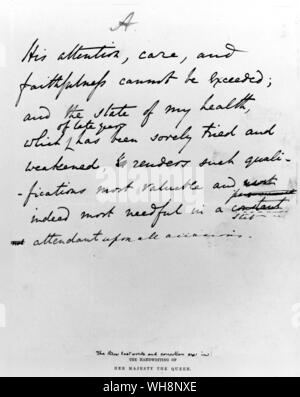 A
His attention, care, and
faithfulness cannot be exceeded;
and the state of my health,
of late years
which, has been sorely tried and
weakened renders such quali-
-fications most valuable and most
indeed most needful in a constant
attendant upon all occasions.
The three last words and correction are in
THE HANDWRITING OF
HER MAJESTY THE QUEEN.
alamy
a
a
Image ID: WH8NXE
www.alamy.com